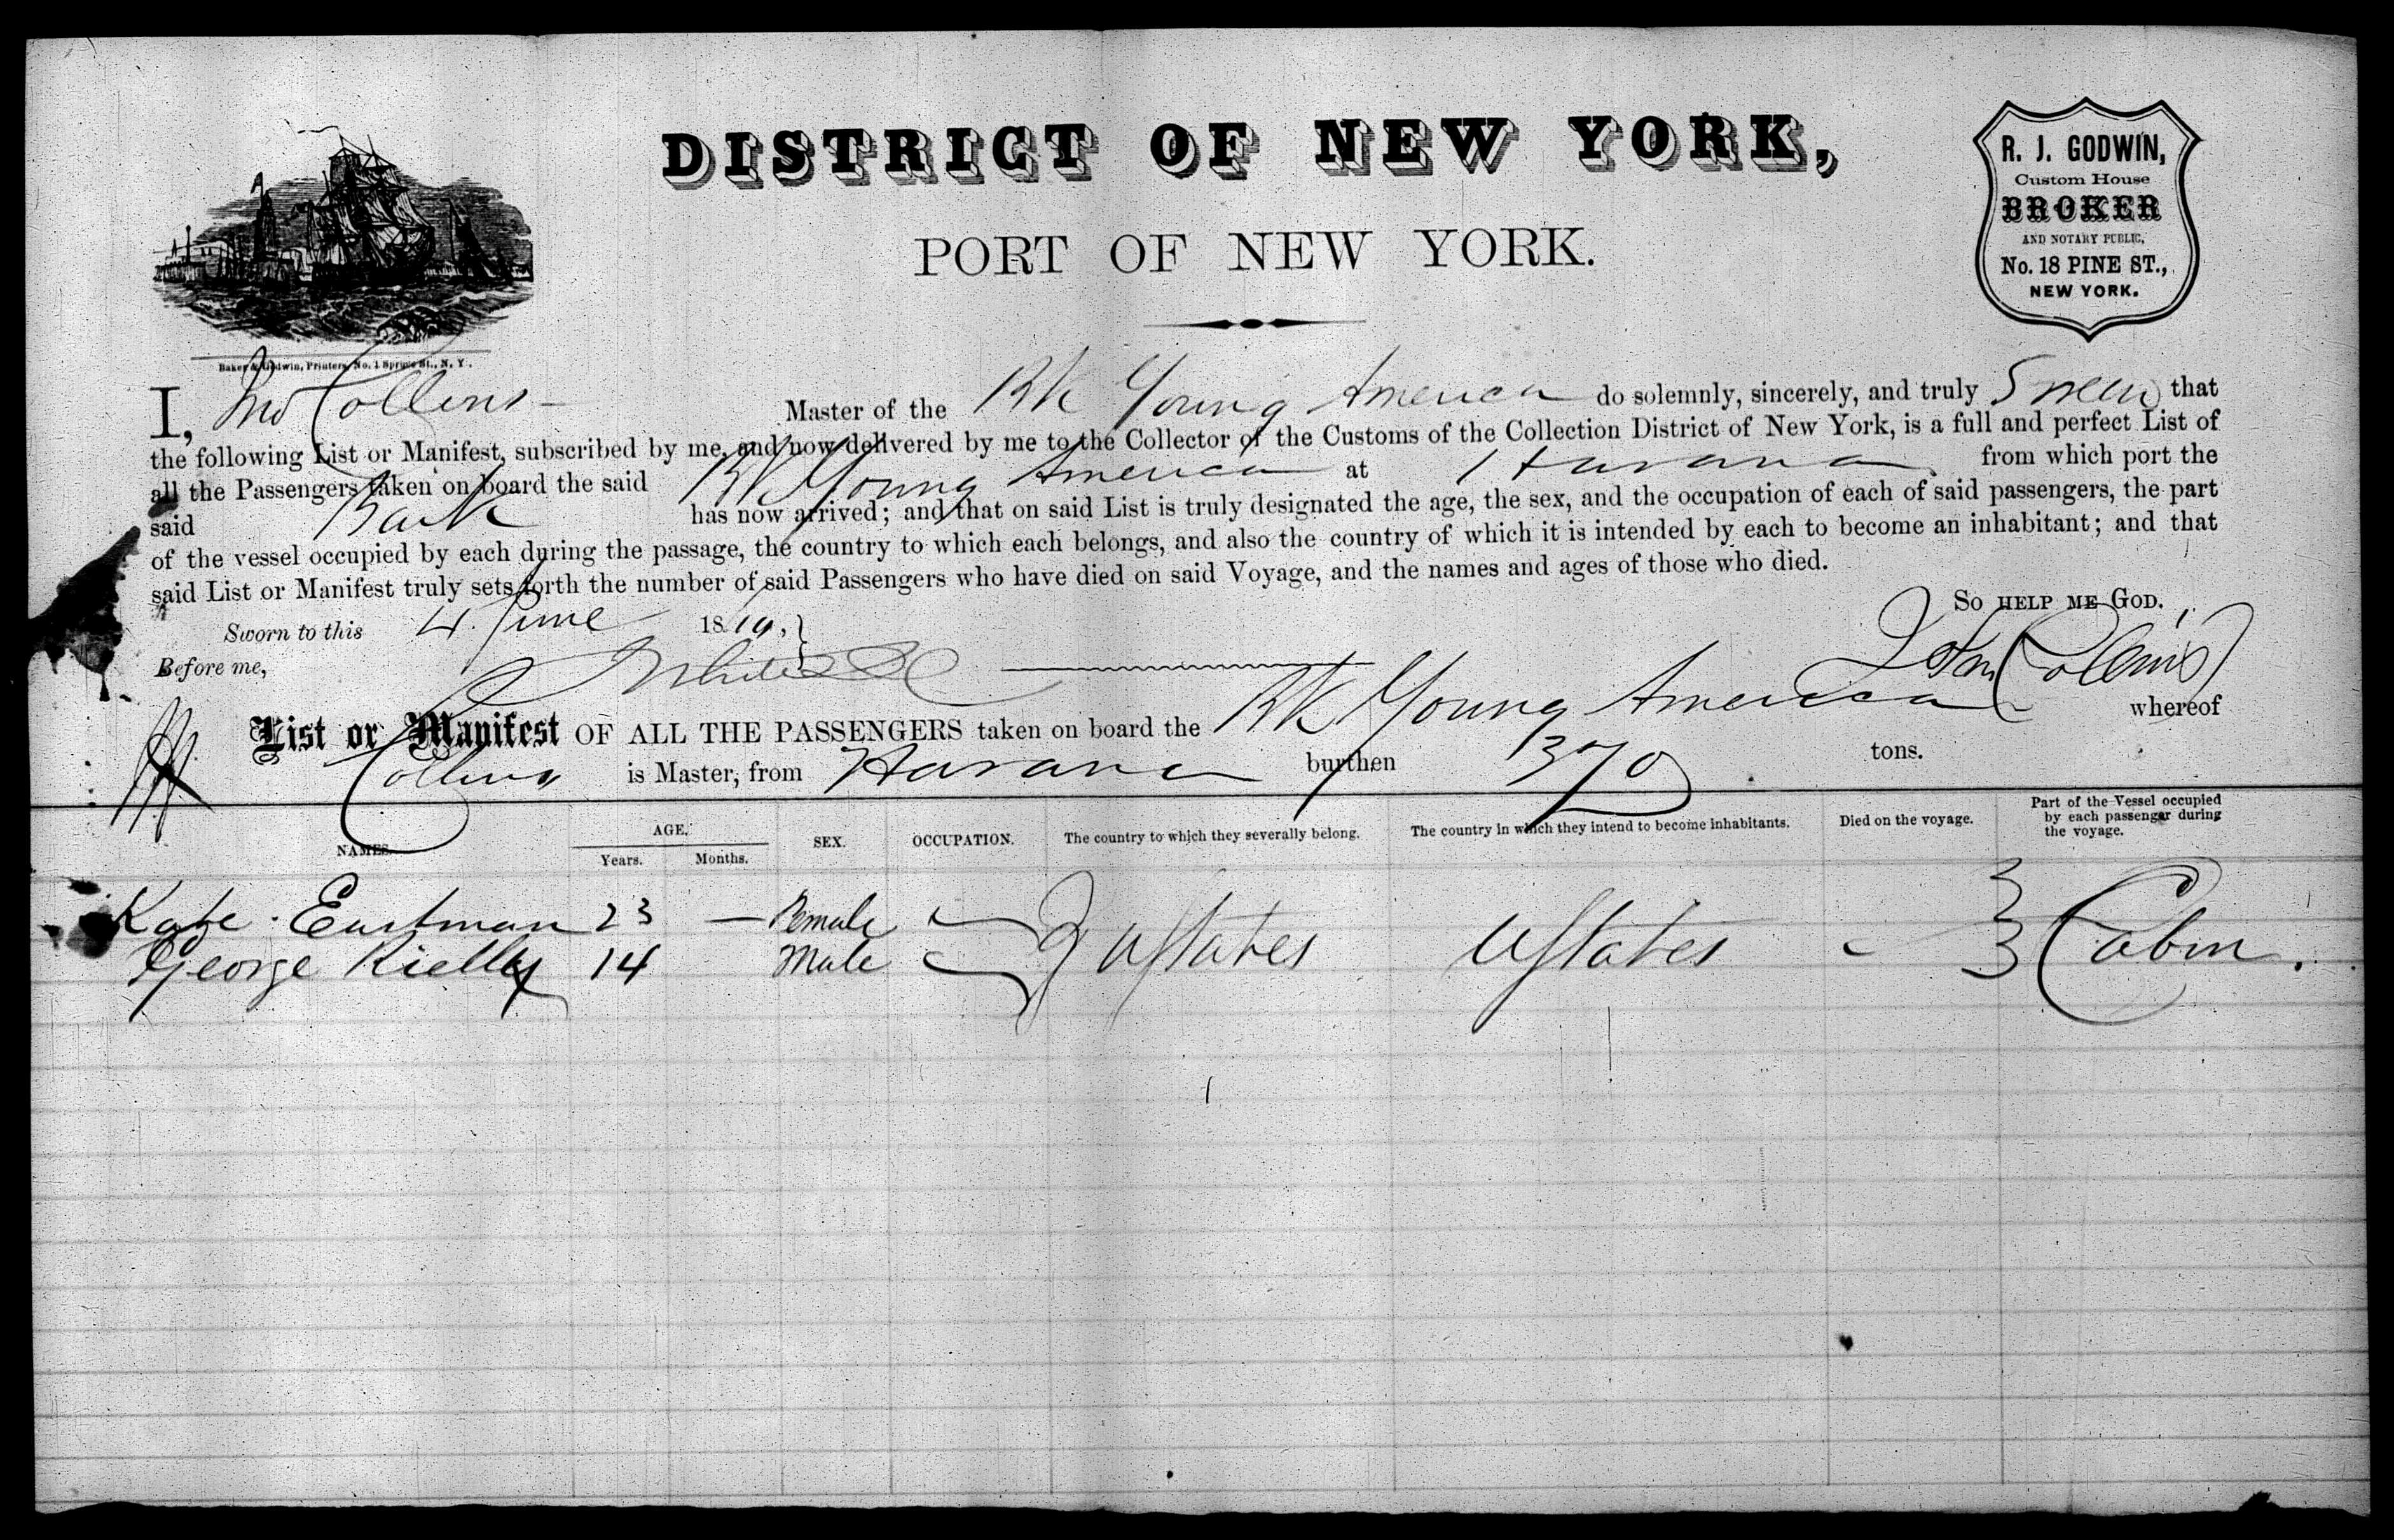 DISTRICT OF NEW YORK,
PORT OF NEW YORK.
R. J. GODWIN,
Custom House
BROKER
AND NOTARY PUBLIC,
No. 18 PINE ST.,
NEW YORK.
Baker & Godwin, Printers, No. 1 Spruce St., N. Y.
I, Jno Collins Master of the Bk Young America do solemnly, sincerely, and truly Swear that
the following List or Manifest, subscribed by me, and now delivered by me to the Collector of the Customs of the Collection District of New York, is a full and perfect List of
all the Passengers taken on board the said Bk Young America at Havana from which port the
said Bark has now arrived; and that on said List is truly designated the age, the sex, and the occupation of each of said passengers, the part
of the vessel occupied by each during the passage, the country to which each belongs, and also the country of which it is intended by each to become an inhabitant; and that
said List or Manifest truly sets forth the number of said Passengers who have died on said Voyage, and the names and ages of those who died.
So HELP ME GOD.
Sworn to this 4 June 18
Before me,
John Collins
List or Manifest OF ALL THE PASSENGERS taken on board the Bk Young America whereof
Collins is Master, from Havana burthen 370 tons.
NAMES. AGE. SEX. OCCUPATION. The country to which they severally belong. The country in which they intend to become inhabitants. Died on the voyage. Part of the Vessel occupied by each passenger during the voyage.
Years. Months.
Kate Eastman 23 — Female UStates UStates - Cabin.
George Rielly 14 Male